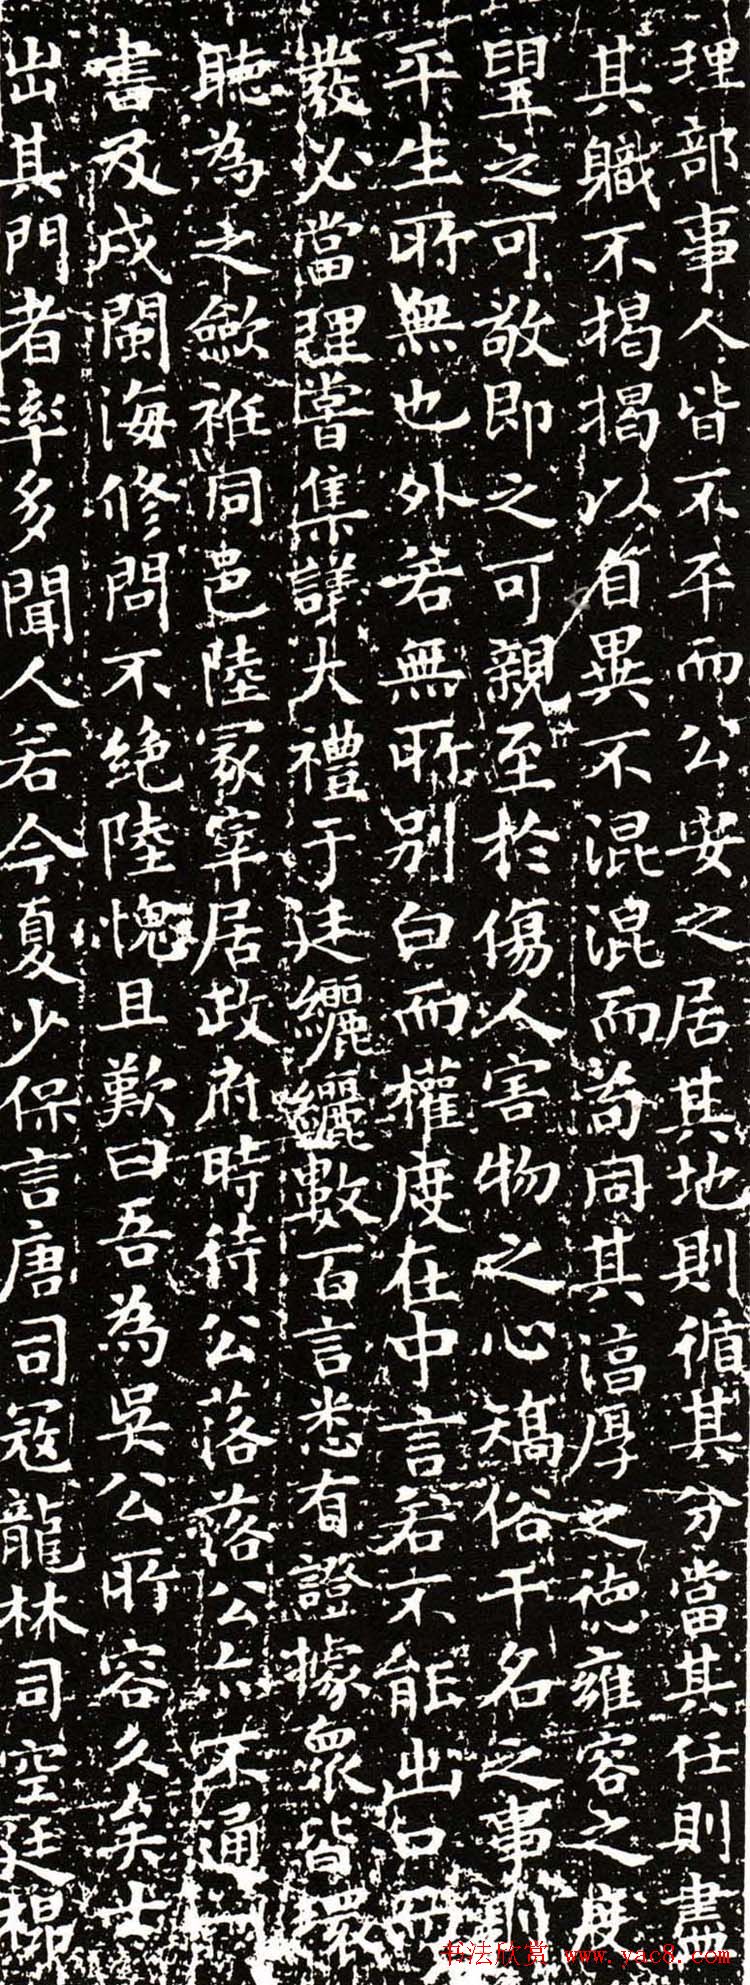 理部事人皆不平而公安之居其地則循其分當其任則盡
其職不揭揭以自異不混混而苟同其渟厚之德雍容之度
望之可敬即之可親至於傷人害物之心矯俗干名之事則
平生所無也外若無所別白而權度在中言若不能出口而
發必當理嘗集議大禮于廷纚纚數百言悉有證據眾皆環
聽為之歛袵同邑陸冢宰居政府時待公落落公亦不通一
書及戍閩海修問不絶陸愧且歎曰吾為吳公所容久矣士
出其門者率多聞人若今夏少保言唐司冦龍林司空廷㭿
书法欣赏 www.yac8.com